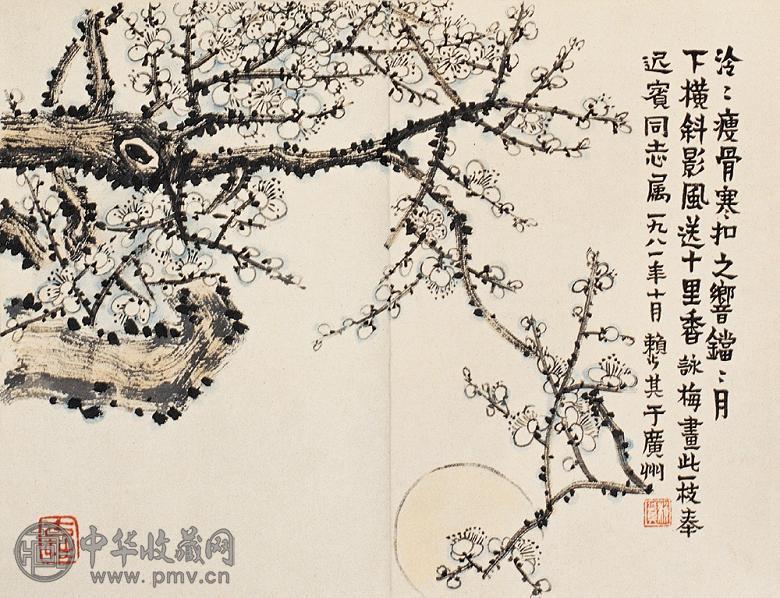 泠〻瘦骨寒扣之響鐺〻月
下橫斜影風送十里香詠梅畫此一枝奉
迟賓同志属一九八一年十月賴少其于廣州
中华收藏网
www.pmv.cn